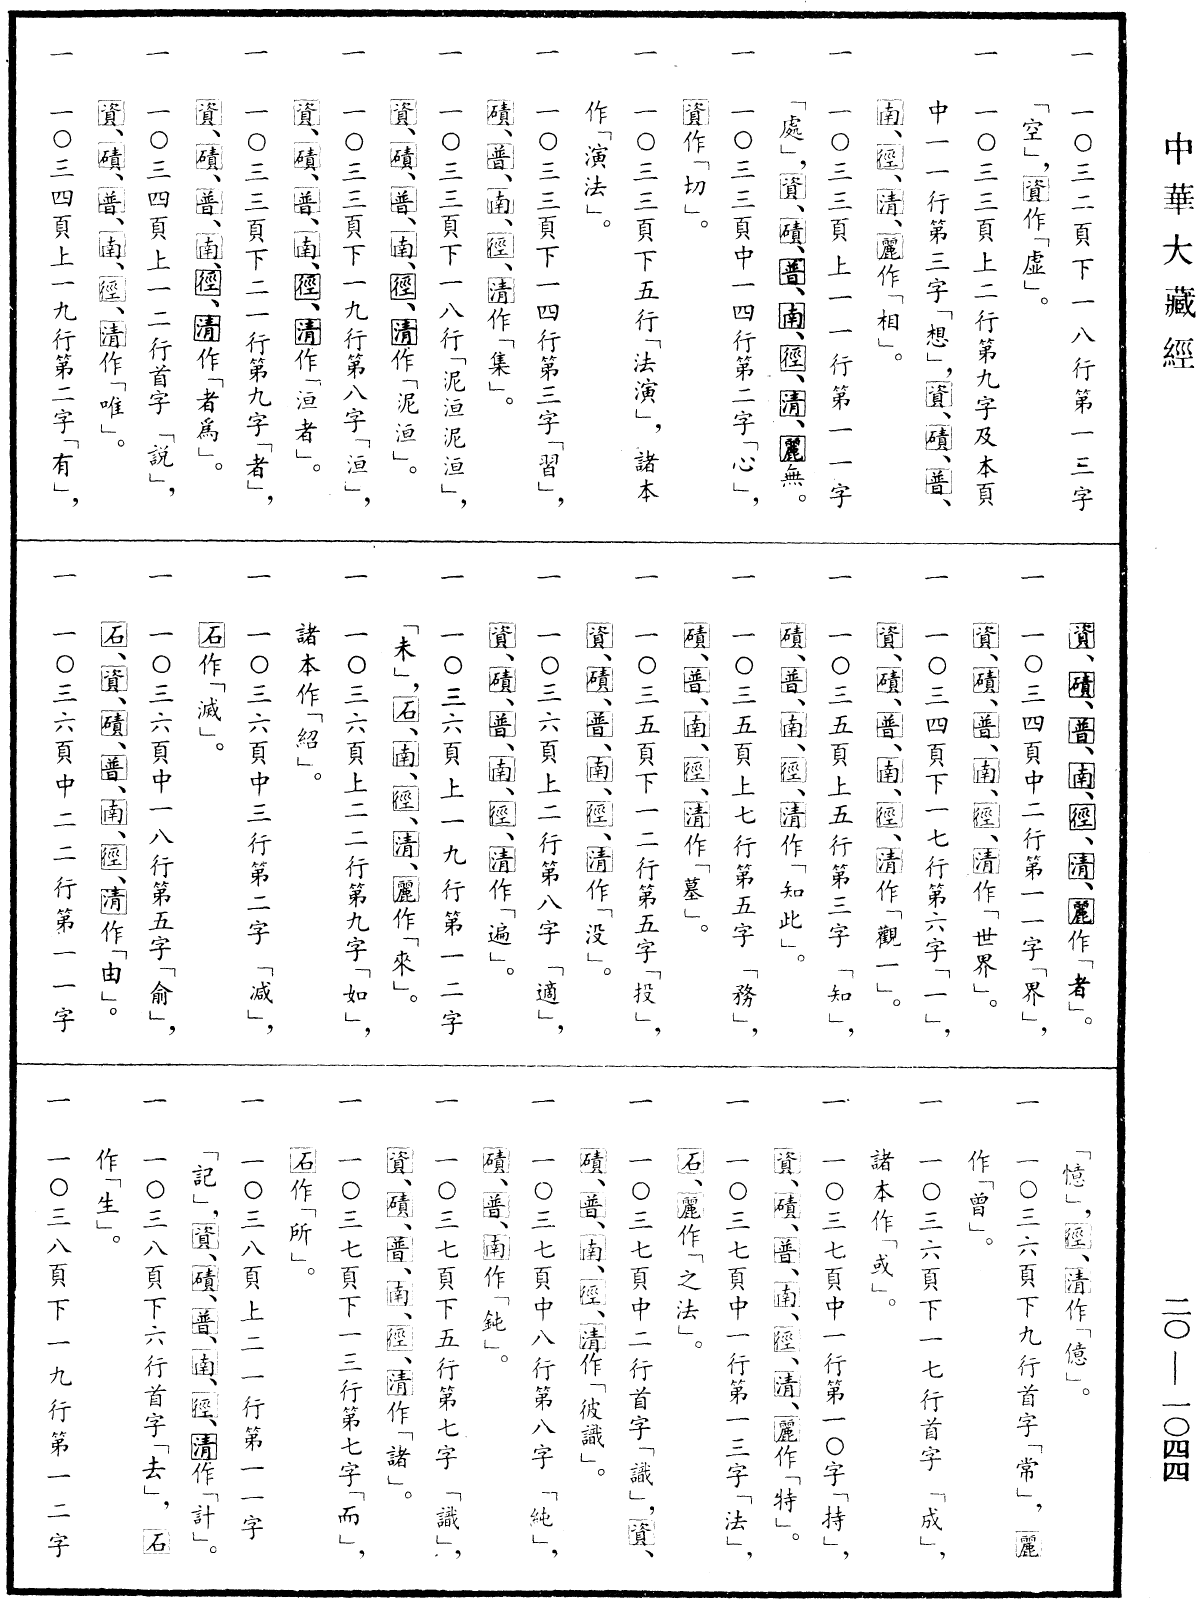 中華大藏經
二〇—一〇四四
一 一〇三二頁下一八行第一三字
「空」，資作「虛」。
一 一〇三三頁上二行第九字及本頁
中一一行第三字「想」，資、磧、普、
南、徑、清、麗作「相」。
一 一〇三三頁上一一行第一一字
「處」，資、磧、普、南、徑、清、麗無。
一 一〇三三頁中一四行第二字「心」，
資作「切」。
一 一〇三三頁下五行「法演」，諸本
作「演法」。
一 一〇三三頁下一四行第三字「習」，
磧、普、南、徑、清作「集」。
一 一〇三三頁下一八行「泥洹泥洹」，
資、磧、普、南、徑、清作「泥洹」。
一 一〇三三頁下一九行第八字「洹」，
資、磧、普、南、徑、清作「洹者」。
一 一〇三三頁下二一行第九字「者」，
資、磧、普、南、徑、清作「者爲」。
一 一〇三四頁上一二行首字「説」，
資、磧、普、南、徑、清作「唯」。
一 一〇三四頁上一九行第二字「有」，
資、磧、普、南、徑、清、麗作「者」。
一 一〇三四頁中二行第一一字「界」，
資、磧、普、南、徑、清作「世界」。
一 一〇三四頁下一七行第六字「一」，
資、磧、普、南、徑、清作「觀一」。
一 一〇三五頁上五行第三字「知」，
磧、普、南、徑、清作「知此」。
一 一〇三五頁上七行第五字「務」，
磧、普、南、徑、清作「墓」。
一 一〇三五頁下一二行第五字「投」，
資、磧、普、南、徑、清作「没」。
一 一〇三六頁上二行第八字「適」，
資、磧、普、南、徑、清作「遍」。
一 一〇三六頁上一九行第一二字
「未」，石、南、徑、清、麗作「來」。
一 一〇三六頁上二二行第九字「如」，
諸本作「紹」。
一 一〇三六頁中三行第二字「減」，
石作「滅」。
一 一〇三六頁中一八行第五字「俞」，
石、資、磧、普、南、徑、清作「由」。
一 一〇三六頁中二二行第一一字
「憶」，徑、清作「億」。
一 一〇三六頁下九行首字「常」，麗
作「曾」。
一 一〇三六頁下一七行首字「成」，
諸本作「或」。
一 一〇三七頁中一行第一〇字「持」，
資、磧、普、南、徑、清、麗作「特」。
一 一〇三七頁中一行第一三字「法」，
石、麗作「之法」。
一 一〇三七頁中二行首字「識」，資、
磧、普、南、徑、清作「彼識」。
一 一〇三七頁中八行第八字「純」，
磧、普、南作「鈍」。
一 一〇三七頁下五行第七字「識」，
資、磧、普、南、徑、清作「諸」。
一 一〇三七頁下一三行第七字「而」，
石作「所」。
一 一〇三八頁上二一行第一一字
「記」，資、磧、普、南、徑、清作「計」。
一 一〇三八頁下六行首字「去」，石
作「生」。
一 一〇三八頁下一九行第一二字